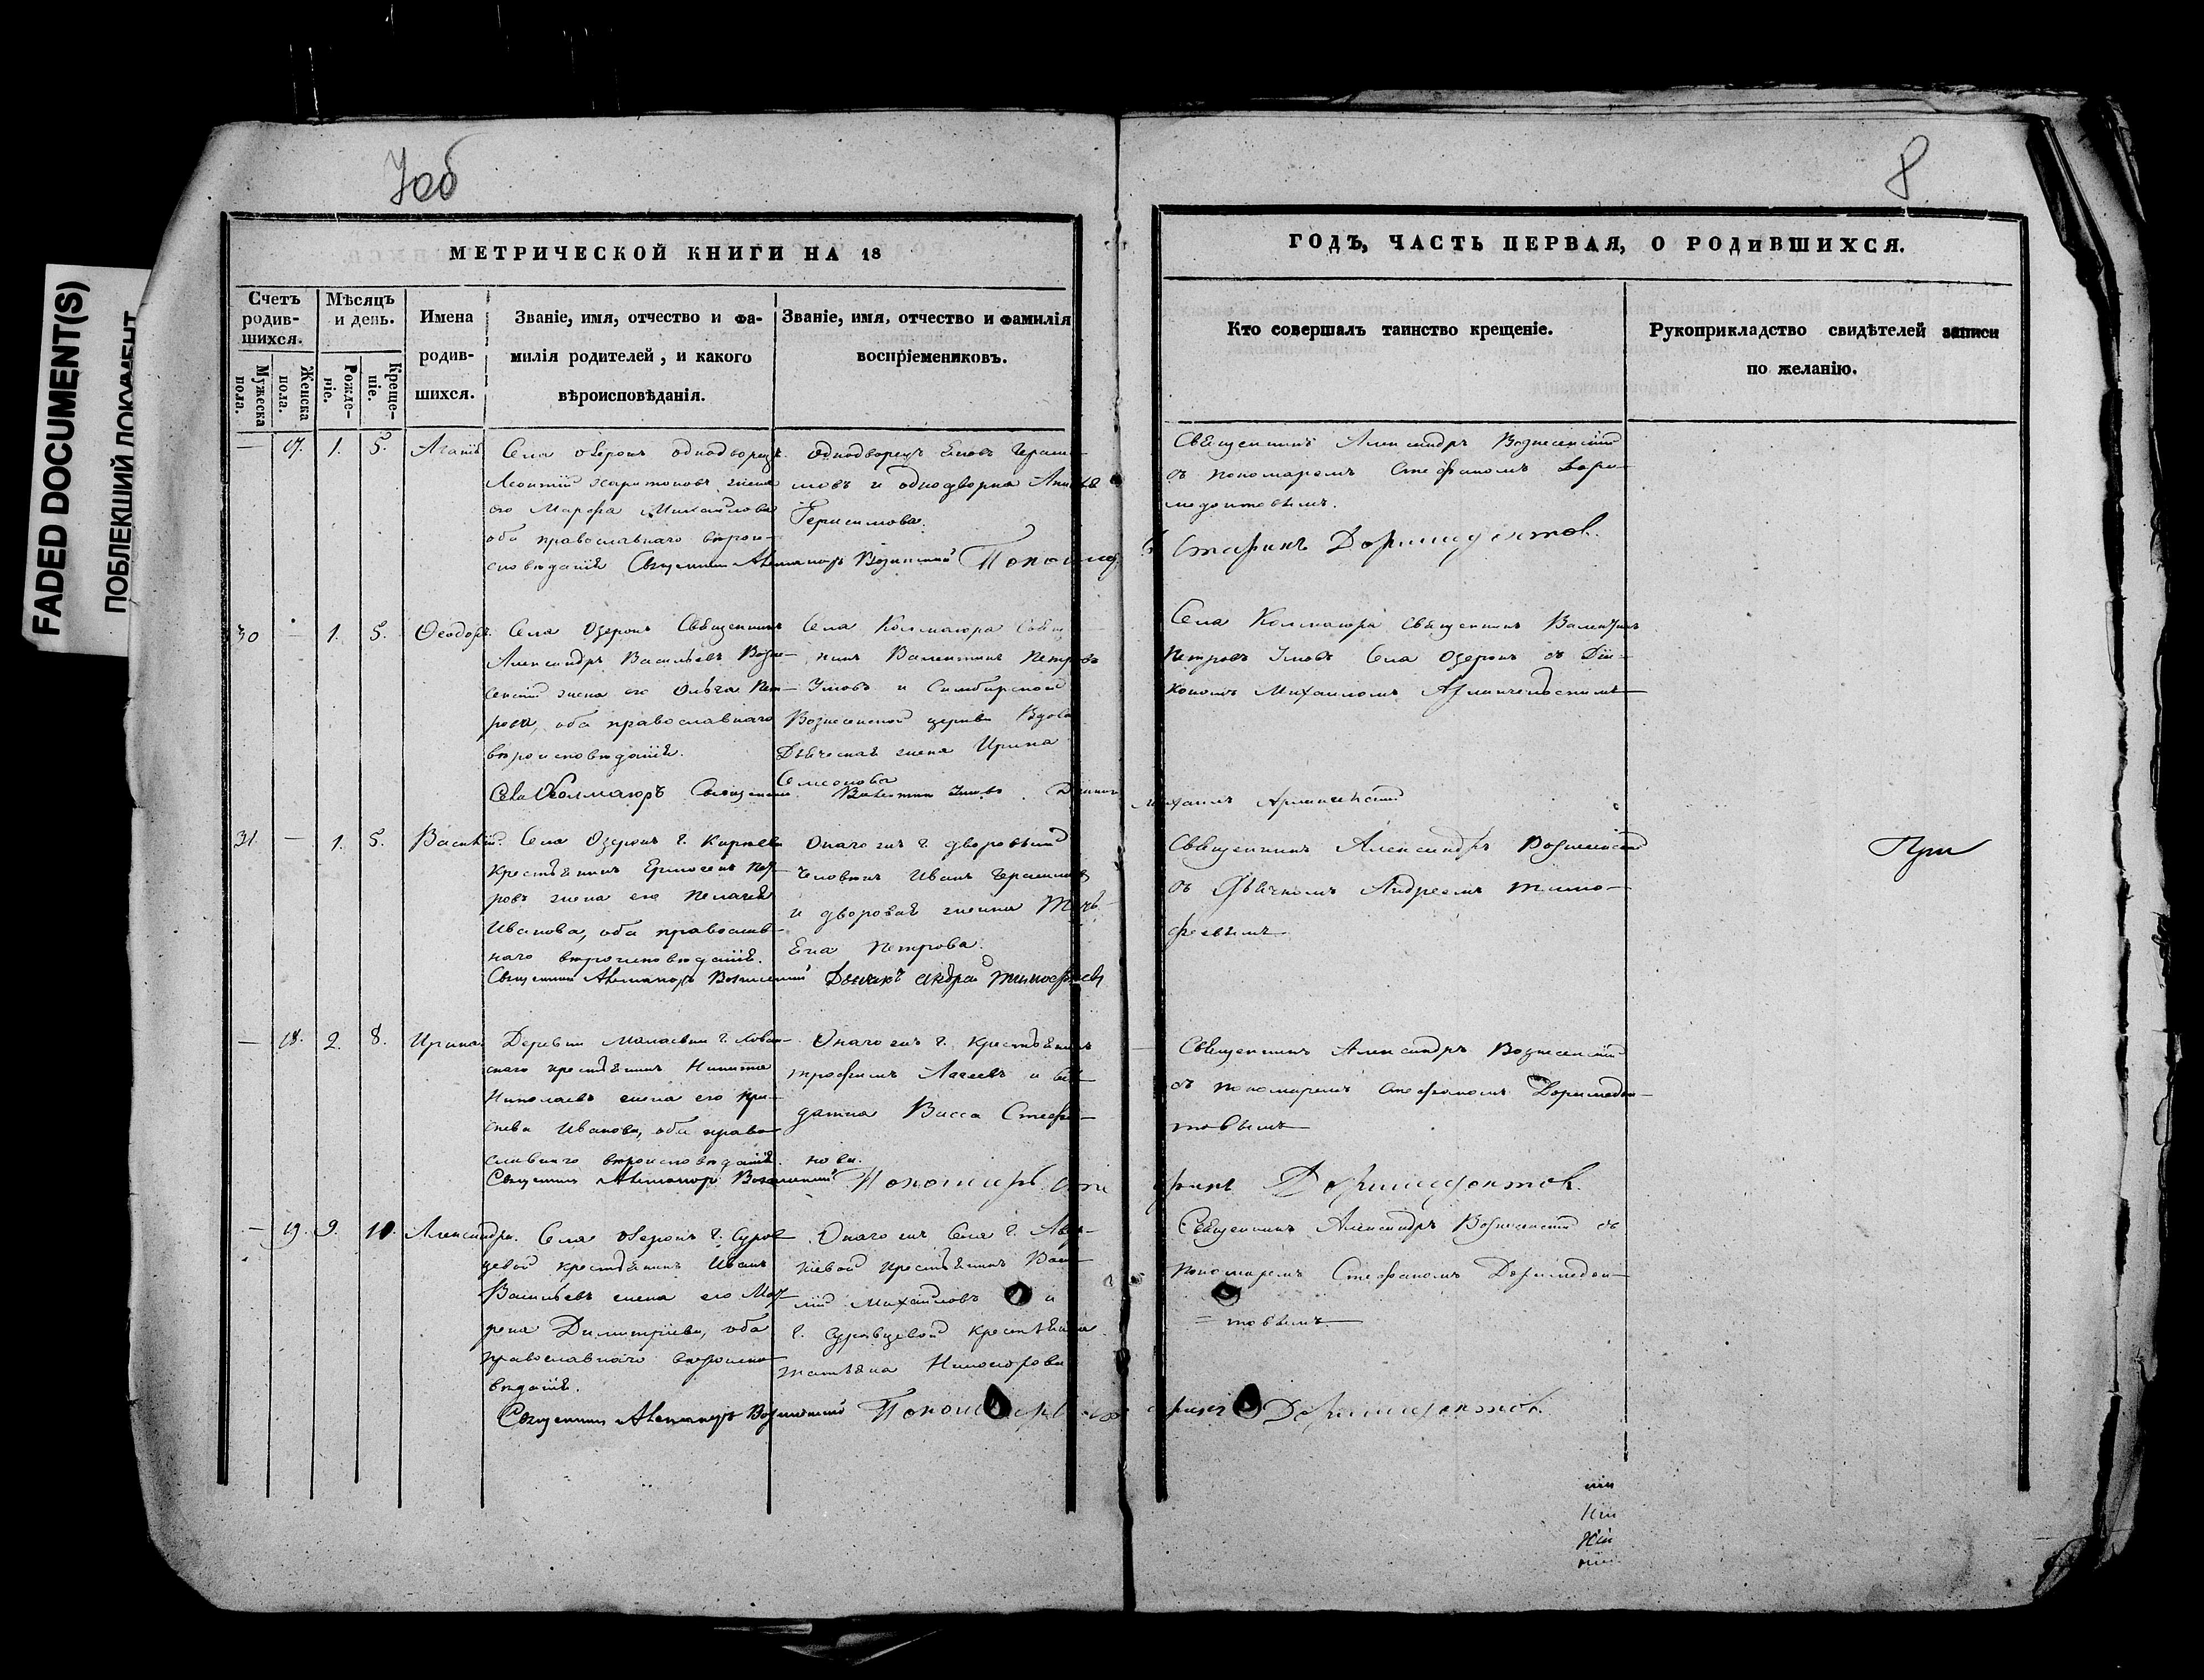 7об
8
FADED DOCUMENT(S)
ПОБЛЕКШИЙ ДОКУМЕНТ
МЕТРИЧЕСКОЙ КНИГИ НА 18
ГОДЪ, ЧАСТЬ ПЕРВАЯ, О РОДИВШИХСЯ.
Счетъ родив-шихся.
Мужеска пола.
Женска пола.
Мѣсяцъ и день.
Рожде-ніе.
Креще-ніе.
Имена родив-шихся.
Званіе, имя, отчество и фа-
милія родителей, и какого
вѣроисповѣданія.
Званіе, имя, отчество и фамилія
воспріемениковъ.
Кто совершалъ таинство крещеніе.
Рукоприкладство свидѣтелей записи
по желанію.
— 17. 1. 5.
Села Озерокъ однодворецъ
Леонтій Харитоновъ жена
его Марфа Михайлова
оба православнаго вѣрои-
сповѣданія
однодворецъ Герасимовъ и однодворка
Герасимова.
Священникъ Александръ Вознесенскій
съ пономаремъ Стефаномъ Дори-
медонтовымъ.
Священникъ Александръ Вознесенскій Пономарь Стефанъ Доримедонтовъ.
30 — 1. 5. Ѳеодоръ.
Села Озерокъ Священникъ
Александръ Васильевъ Возне-
сенскій жена его Ольга Пет-
рова, оба православнаго
вѣроисповѣданія.
Села Колмаюра Священ-
никъ Валентинъ Петровъ
Умовъ и Симбирской
Вознесенской церкви Вдова
Дьяческая жена Ирина
Семенова
Села Колмаюра Священникъ Валентинъ
Петровъ Умовъ Села Озерокъ съ Діа-
кономъ Михаиломъ
Села Колмаюръ Священникъ Валентинъ Умовъ. Діаконъ
Михаилъ
31. — 1. 5. Василій.
Села Озерокъ г.
Крестьянинъ Ермогенъ Пет-
ровъ жена его Пелагея
Иванова, оба православ-
наго вѣроисповѣданія.
Онаго жъ г. дворовый
человѣкъ Иванъ Герасимовъ
и дворовая женка
Петрова.
Священникъ Александръ Вознесенскій
съ Дьячкомъ Андреемъ Тимо-
феевымъ
Священникъ Александръ Вознесенскій Дьячокъ Андрей Тимофеевъ
— 18. 2. 8. Ирина.
Деревни г.
крестьянинъ Никита
Николаевъ жена его
Иванова, оба право-
славнаго вѣроисповѣданія.
Онаго жъ г. Крестьянинъ
Трофимъ и сол-
датка Васса Стефа-
нова.
Священникъ Александръ Вознесенскій
съ пономаремъ Стефаномъ Доримедон-
товымъ
Священникъ Александръ Вознесенскій Пономарь Стефанъ Доримедонтовъ.
— 19. 9. 10. Александра.
Села Озерокъ г. Суров-
цевой крестьянинъ Иванъ
Васильевъ жена его Мат-
рена Димитріева, оба
православнаго вѣроиспо-
вѣданія.
Онаго жъ Села г.
крестьянинъ Васи-
лій Михайловъ и
г. Суровцевой крестьянка
Татьяна Никифорова
Священникъ Александръ Вознесенскій съ
Пономаремъ Стефаномъ Доримедон-
= товымъ
Священникъ Александръ Вознесенскій Пономарь Стефанъ Доримедонтовъ.